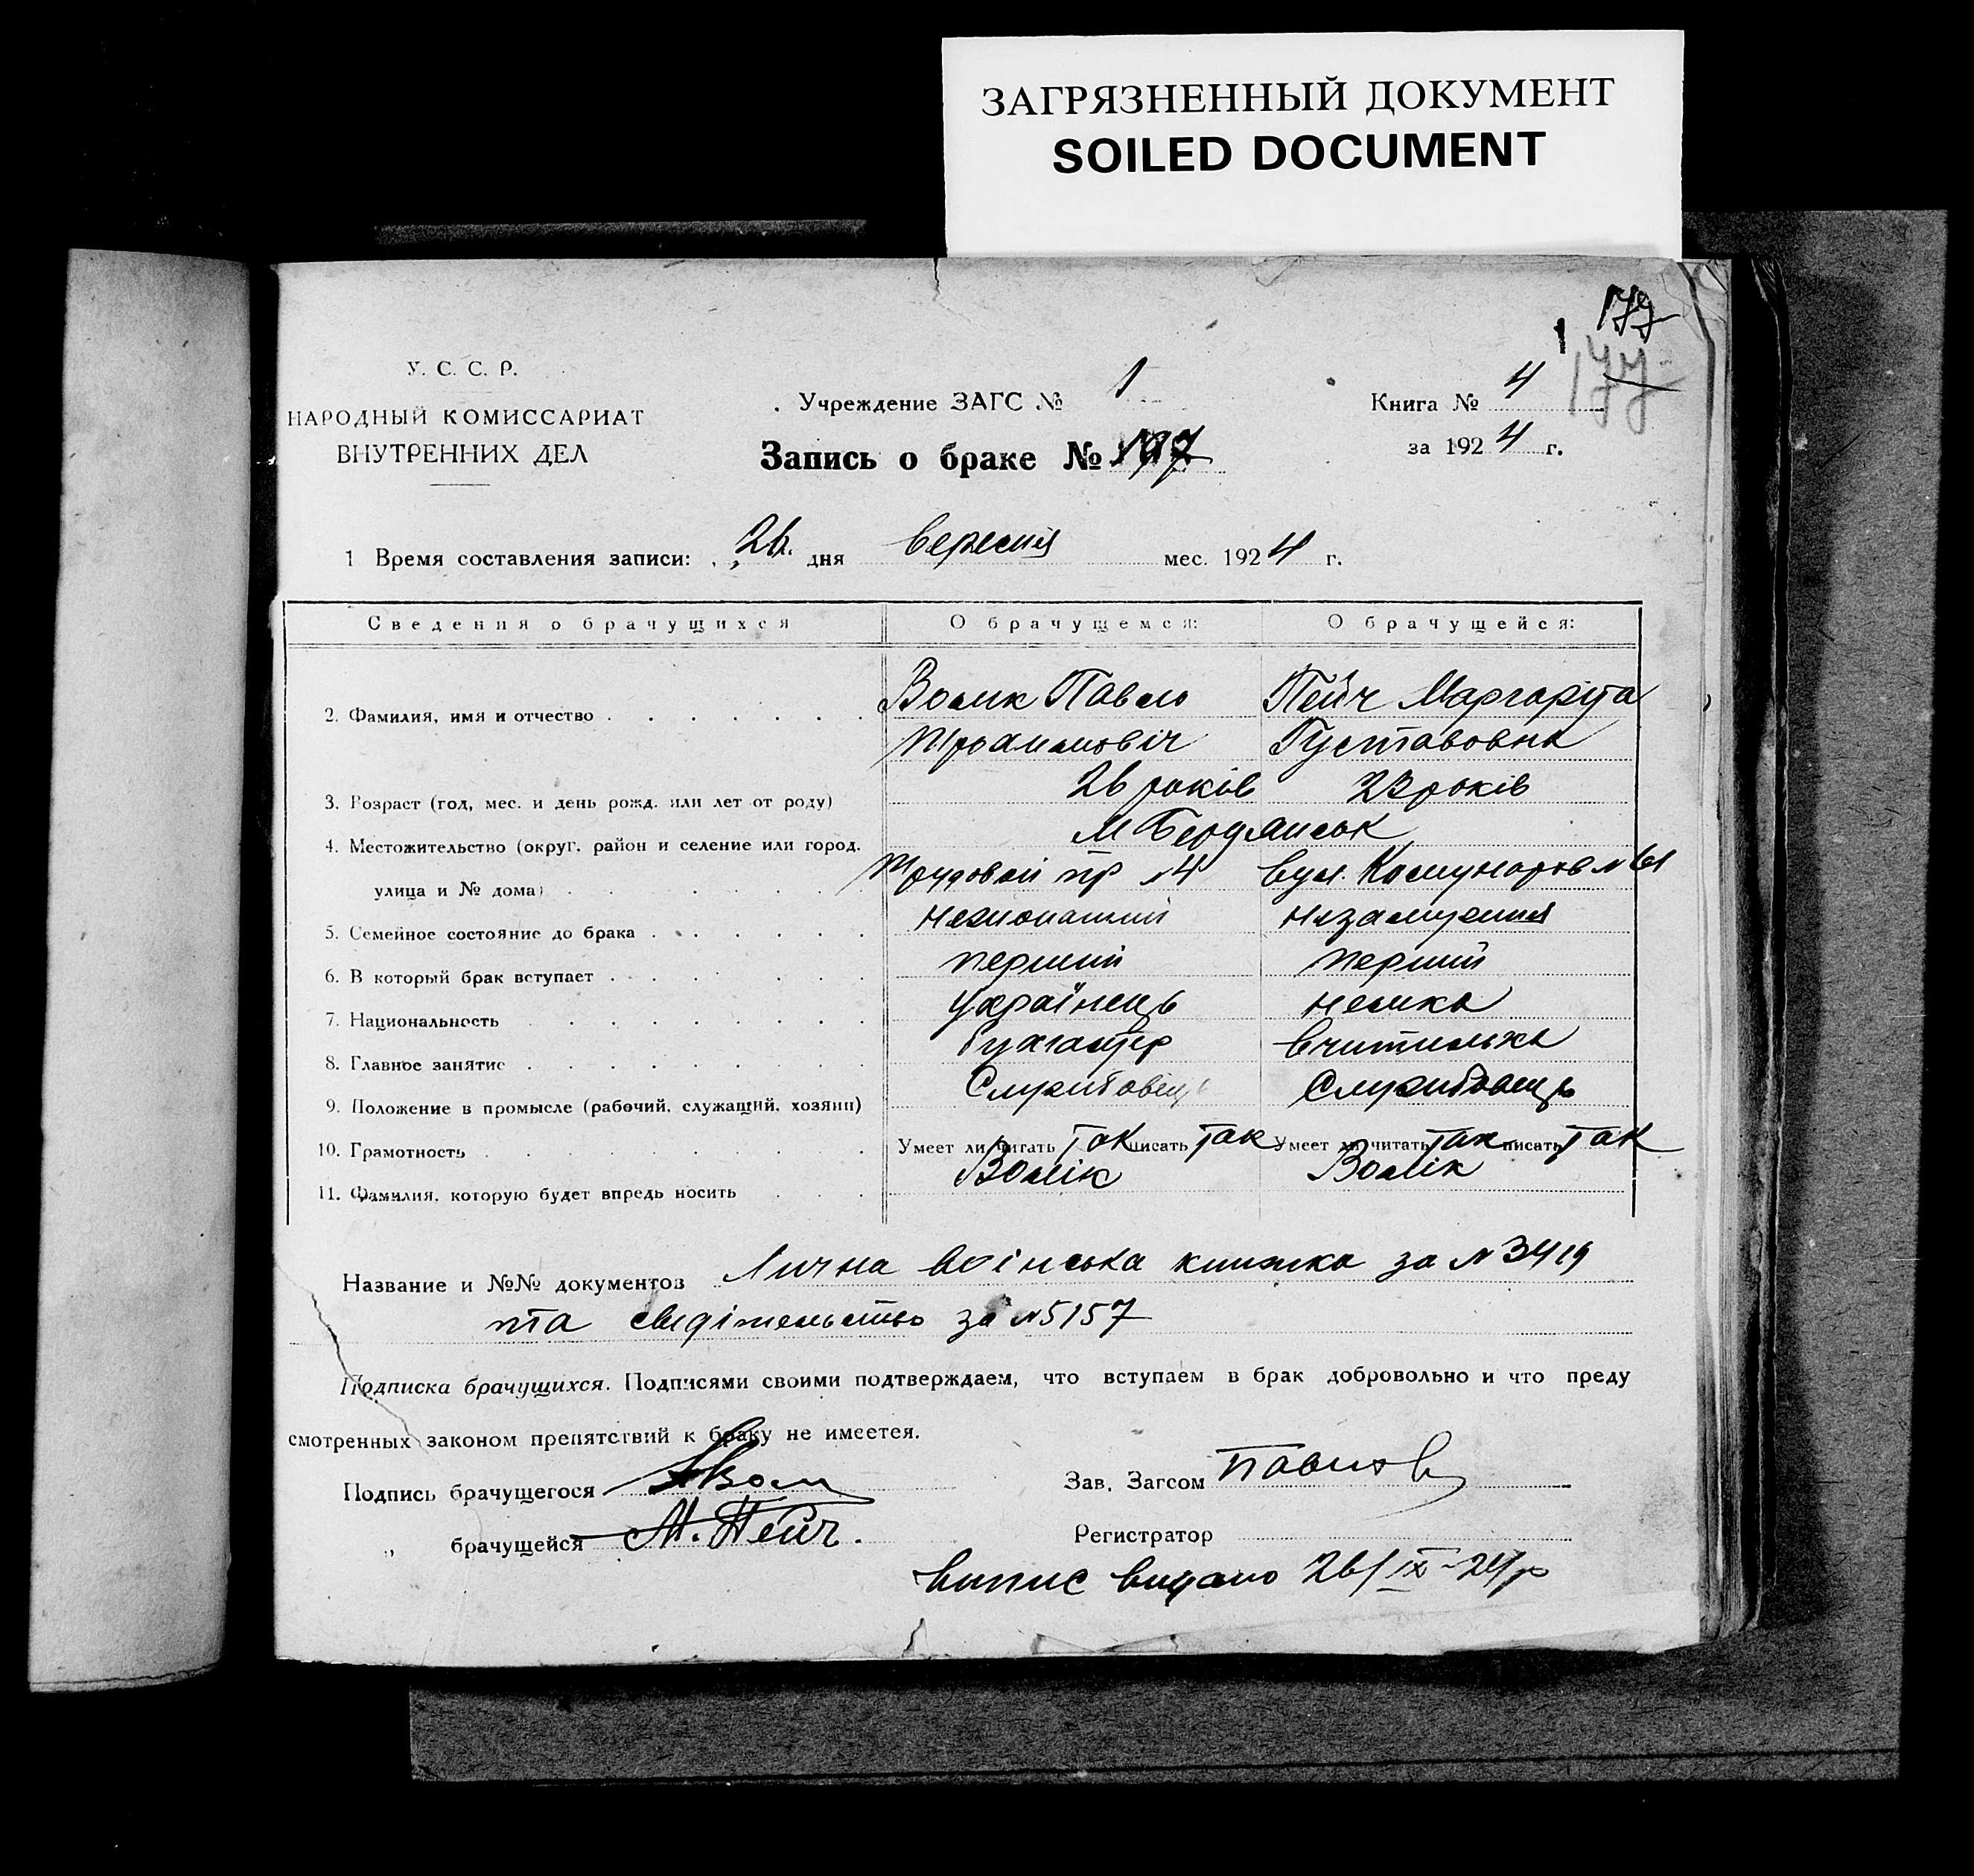 ЗАГРЯЗНЕННЫЙ ДОКУМЕНТ
SOILED DOCUMENT
177
1
У. С. С. Р.
НАРОДНЫЙ КОМИССАРИАТ
ВНУТРЕННИХ ДЕЛ
Учреждение ЗАГС № 1
Запись о браке № 197
Книга № 4
за 1924 г.
1 Время составления записи: 26. дня вересня мес. 1924 г.
Сведения о брачущихся О брачущемся: О брачущейся:
2. Фамилия, имя и отчество Волик Павло Пейч Маргарита
Густавовна
3. Возраст (год, мес. и день рожд. или лет от роду) 26 років 23 років
4. Местожительство (округ, район и селение или город, М Бердянськ
улица и № дома) Трудовой пр №4 вул. Комунаров №61
5. Семейное состояние до брака нежонатий незамужня
6. В который брак вступает перший перший
7. Национальность українець немка
8. Главное занятие бухгалтер вчителька
9. Положение в промысле (рабочий, служащий, хозяин) Службовець Службовець
10. Грамотность Умеет ли читать так писать так Умеет ли читать так писать так
11. Фамилия, которую будет впредь носить Волік Волік
Название и №№ документов Лична воінська книжка за №3419
та свидітельство за №5157
Подписка брачущихся. Подписями своими подтверждаем, что вступаем в брак добровольно и что преду
смотренных законом препятствий к браку не имеется.
Подпись брачущегося
Зав. Загсом Павлов
„ брачущейся М. Пейч.
Регистратор
випис видано 26/IX-24 р